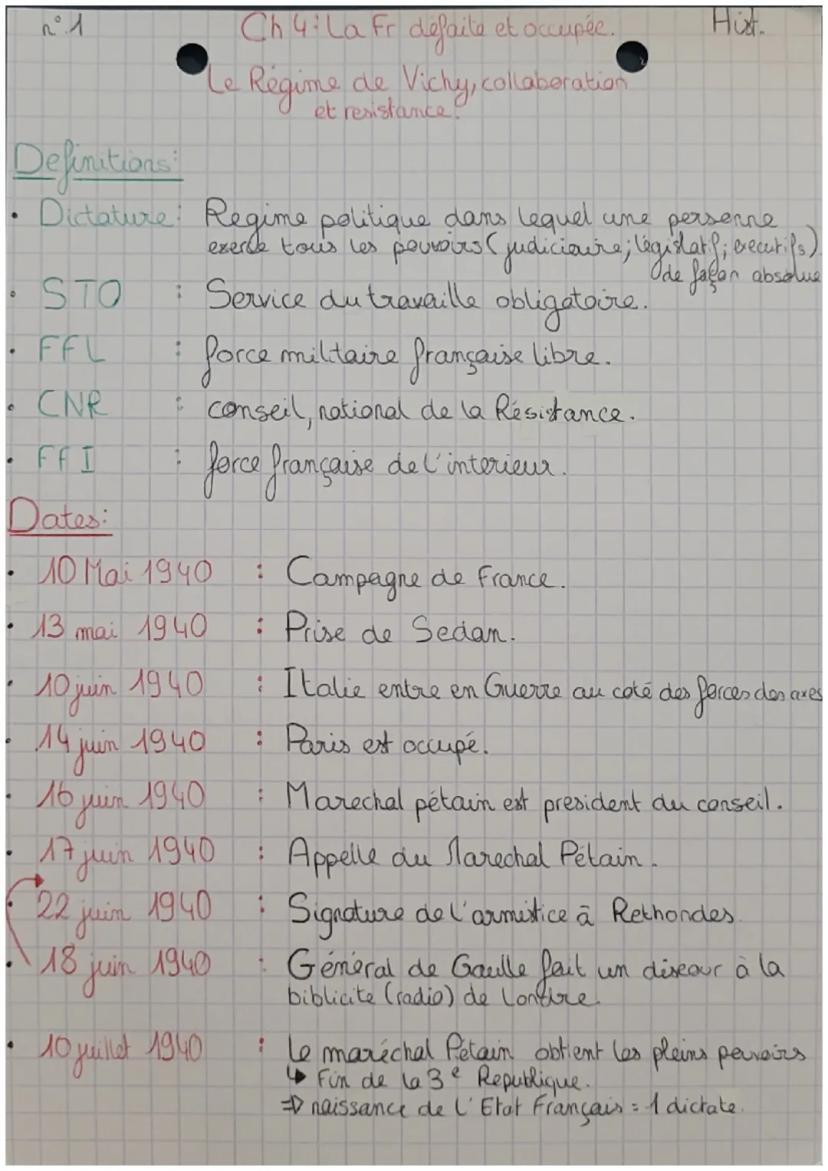 n°1 Ch 4: La Fr défaite et occupée. Hist.
Le Régime de Vichy, collaboration
et resistance.
Definitions:
• Dictature: Regime politique dans lequel une personne
exerce tous les pouvoirs (judiciaire; législatif; executifs)
de façon absolue
• STO : Service du travaille obligatoire.
• FFL : force militaire française libre.
• CNR : conseil, national de la Résistance.
• FFI : force française de l'interieur.
Dates:
• 10 Mai 1940 : Campagne de France.
• 13 mai 1940 : Prise de Sedan.
• 10 juin 1940 : Italie entre en Guerre au coté des forces des axes
• 14 juin 1940 : Paris est occupé.
• 16 juin 1940 : Marechal pétain est president du conseil.
• 17 juin 1940 : Appelle du Marechal Pétain.
• 22 juin 1940 : Signature de l'armistice à Rethondes.
• 18 juin 1940 : Général de Gaulle fait un discour à la
biblicite (radio) de Londre.
• 10 juillet 1940 : Le maréchal Pétain obtient les pleins pouvoirs
↳ Fin de la 3e Republique.
⇒ naissance de l'Etat Français = 1 dictate.